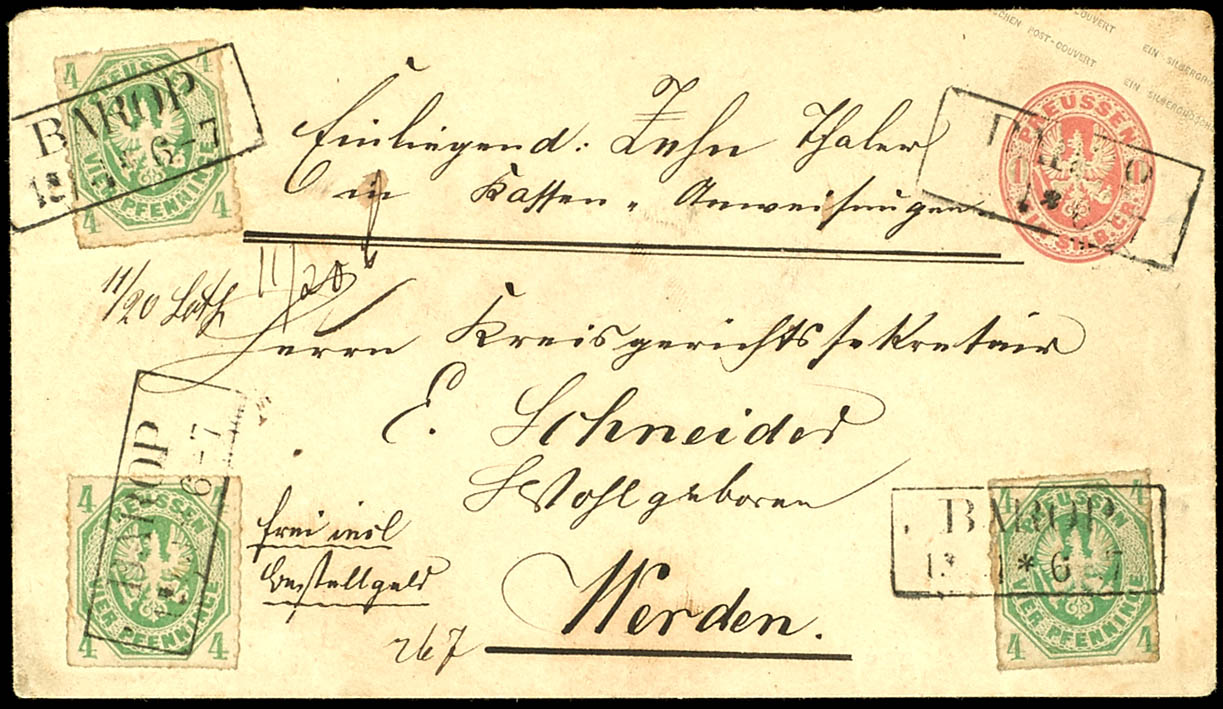 SCHEN POST-COUVERT
COUVERT EIN SILBERGRO
EIN SILBERGROSCHE
4 4
PREUSSEN
VIER PFENNINGE
4 4
BAROP
6-7
PREUSSEN
1 1
EIN SILB.GR.
Einliegend: Zehn Thaler
in Kassen-Anweisungen
11/20 Loth 11/20
Herrn Kreisgerichtssekretair
E. Schneider
Wohlgeboren
frei incl
Bestellgeld
Werden.
267
BAROP
6-7
4 4
PREUSSEN
VIER PFENNINGE
4 4
BAROP
* 6-7
4 4
PREUSSEN
VIER PFENNINGE
4 4